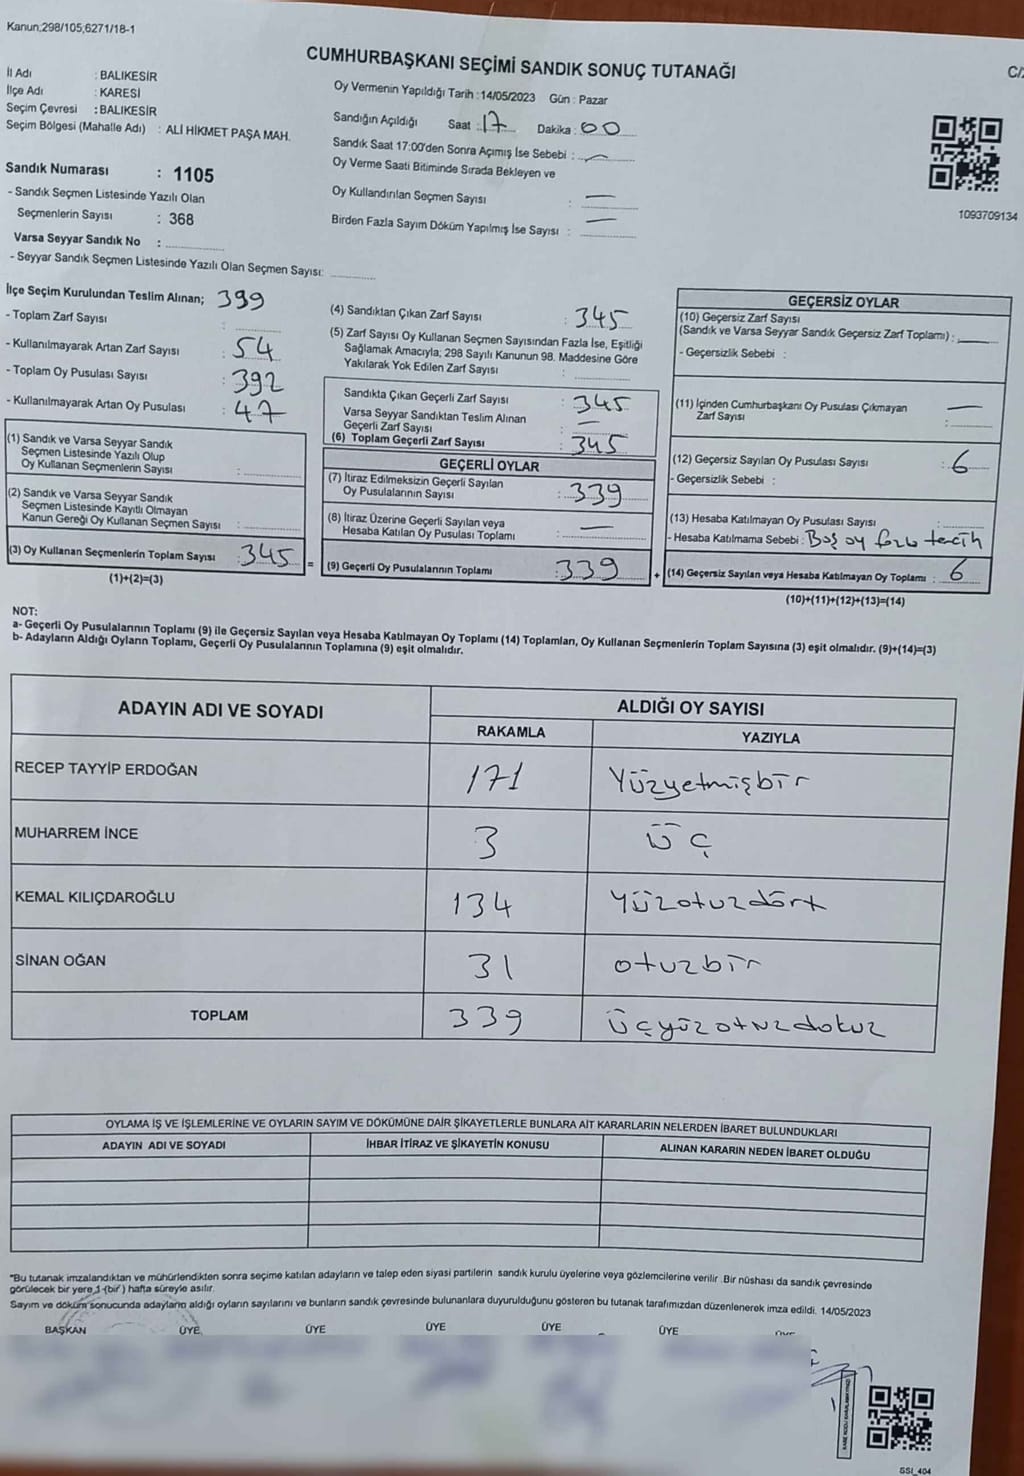 Kanun:298/105,6271/18-1
CUMHURBAŞKANI SEÇİMİ SANDIK SONUÇ TUTANAĞI
C/2
İl Adı : BALIKESİR
İlçe Adı : KARESİ
Seçim Çevresi : BALIKESİR
Seçim Bölgesi (Mahalle Adı) : ALİ HİKMET PAŞA MAH.
Oy Vermenin Yapıldığı Tarih :14/05/2023 Gün : Pazar
Sandığın Açıldığı Saat : 17 Dakika : 00
Sandık Saat 17:00'den Sonra Açımış İse Sebebi : —
Oy Verme Saati Bitiminde Sırada Bekleyen ve
Oy Kullandırılan Seçmen Sayısı : —
Birden Fazla Sayım Döküm Yapılmış İse Sayısı : —
1093709134
Sandık Numarası : 1105
- Sandık Seçmen Listesinde Yazılı Olan
Seçmenlerin Sayısı : 368
Varsa Seyyar Sandık No :
- Seyyar Sandık Seçmen Listesinde Yazılı Olan Seçmen Sayısı:
İlçe Seçim Kurulundan Teslim Alınan; 399
- Toplam Zarf Sayısı :
- Kullanılmayarak Artan Zarf Sayısı : 54
- Toplam Oy Pusulası Sayısı : 392
- Kullanılmayarak Artan Oy Pusulası : 47
(1) Sandık ve Varsa Seyyar Sandık
Seçmen Listesinde Yazılı Olup
Oy Kullanan Seçmenlerin Sayısı :
(2) Sandık ve Varsa Seyyar Sandık
Seçmen Listesinde Kayıtlı Olmayan
Kanun Gereği Oy Kullanan Seçmen Sayısı :
(3) Oy Kullanan Seçmenlerin Toplam Sayısı : 345 =
(1)+(2)=(3)
(4) Sandıktan Çıkan Zarf Sayısı : 345
(5) Zarf Sayısı Oy Kullanan Seçmen Sayısından Fazla İse, Eşitliği
Sağlamak Amacıyla; 298 Sayılı Kanunun 98. Maddesine Göre
Yakılarak Yok Edilen Zarf Sayısı :
Sandıkta Çıkan Geçerli Zarf Sayısı : 345
Varsa Seyyar Sandıktan Teslim Alınan
Geçerli Zarf Sayısı : —
(6) Toplam Geçerli Zarf Sayısı : 345
GEÇERLİ OYLAR
(7) İtiraz Edilmeksizin Geçerli Sayılan
Oy Pusulalarının Sayısı : 339
(8) İtiraz Üzerine Geçerli Sayılan veya
Hesaba Katılan Oy Pusulası Toplamı : —
(9) Geçerli Oy Pusulalarının Toplamı : 339 +
GEÇERSİZ OYLAR
(10) Geçersiz Zarf Sayısı
(Sandık ve Varsa Seyyar Sandık Geçersiz Zarf Toplamı) : —
- Geçersizlik Sebebi :
(11) İçinden Cumhurbaşkanı Oy Pusulası Çıkmayan
Zarf Sayısı : —
(12) Geçersiz Sayılan Oy Pusulası Sayısı : 6
- Geçersizlik Sebebi :
(13) Hesaba Katılmayan Oy Pusulası Sayısı :
- Hesaba Katılmama Sebebi : Boş oy fazla tercih
(14) Geçersiz Sayılan veya Hesaba Katılmayan Oy Toplamı : 6
(10)+(11)+(12)+(13)=(14)
NOT:
a- Geçerli Oy Pusulalarının Toplamı (9) ile Geçersiz Sayılan veya Hesaba Katılmayan Oy Toplamı (14) Toplamları, Oy Kullanan Seçmenlerin Toplam Sayısına (3) eşit olmalıdır. (9)+(14)=(3)
b- Adayların Aldığı Oyların Toplamı, Geçerli Oy Pusulalarının Toplamına (9) eşit olmalıdır.
ADAYIN ADI VE SOYADI
ALDIĞI OY SAYISI
RAKAMLA YAZIYLA
RECEP TAYYİP ERDOĞAN 171 Yüzyetmişbir
MUHARREM İNCE 3 Üç
KEMAL KILIÇDAROĞLU 134 Yüzotuzdört
SİNAN OĞAN 31 otuzbir
TOPLAM 339 Üçyüzotuzdokuz
OYLAMA İŞ VE İŞLEMLERİNE VE OYLARIN SAYIM VE DÖKÜMÜNE DAİR ŞİKAYETLERLE BUNLARA AİT KARARLARIN NELERDEN İBARET BULUNDUKLARI
ADAYIN ADI VE SOYADI İHBAR İTİRAZ VE ŞİKAYETİN KONUSU ALINAN KARARIN NEDEN İBARET OLDUĞU
"Bu tutanak imzalandıktan ve mühürlendikten sonra seçime katılan adayların ve talep eden siyasi partilerin sandık kurulu üyelerine veya gözlemcilerine verilir. Bir nüshası da sandık çevresinde
görülecek bir yere 1 (bir) hafta süreyle asılır.
Sayım ve döküm sonucunda adayların aldığı oyların sayılarını ve bunların sandık çevresinde bulunanlara duyurulduğunu gösteren bu tutanak tarafımızdan düzenlenerek imza edildi. 14/05/2023
BAŞKAN ÜYE ÜYE ÜYE ÜYE ÜYE ÜYE
SSI_404